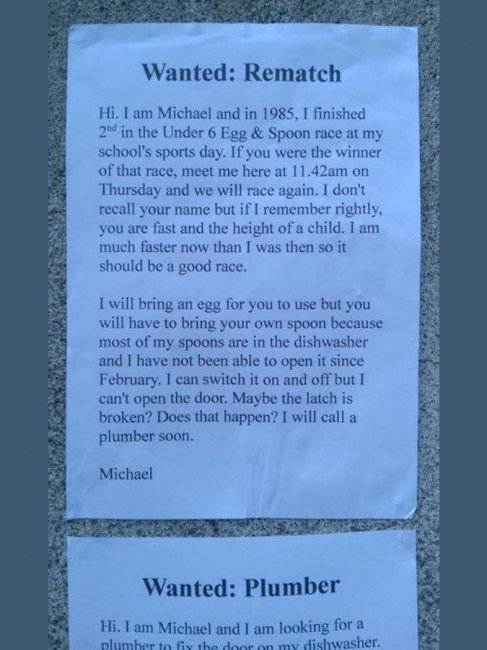 Wanted: Rematch
Hi. I am Michael and in 1985, I finished
2nd in the Under 6 Egg & Spoon race at my
school's sports day. If you were the winner
of that race, meet me here at 11.42am on
Thursday and we will race again. I don't
recall your name but if I remember rightly,
you are fast and the height of a child. I am
much faster now than I was then so it
should be a good race.
I will bring an egg for you to use but you
will have to bring your own spoon because
most of my spoons are in the dishwasher
and I have not been able to open it since
February. I can switch it on and off but I
can't open the door. Maybe the latch is
broken? Does that happen? I will call a
plumber soon.
Michael
Wanted: Plumber
Hi. I am Michael and I am looking for a
plumber to fix the door on my dishwasher.